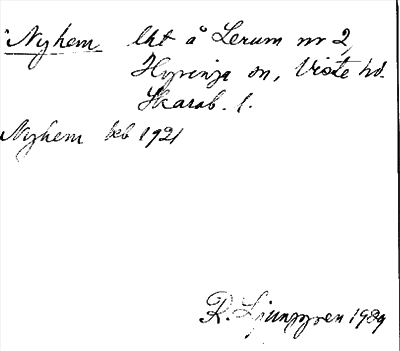 Nyhem lht å Lerum nr 2,
Hyringa sn, Viste hd.
Skarab. l.
Nyhem keb 1921
R. Ljunggren 1989